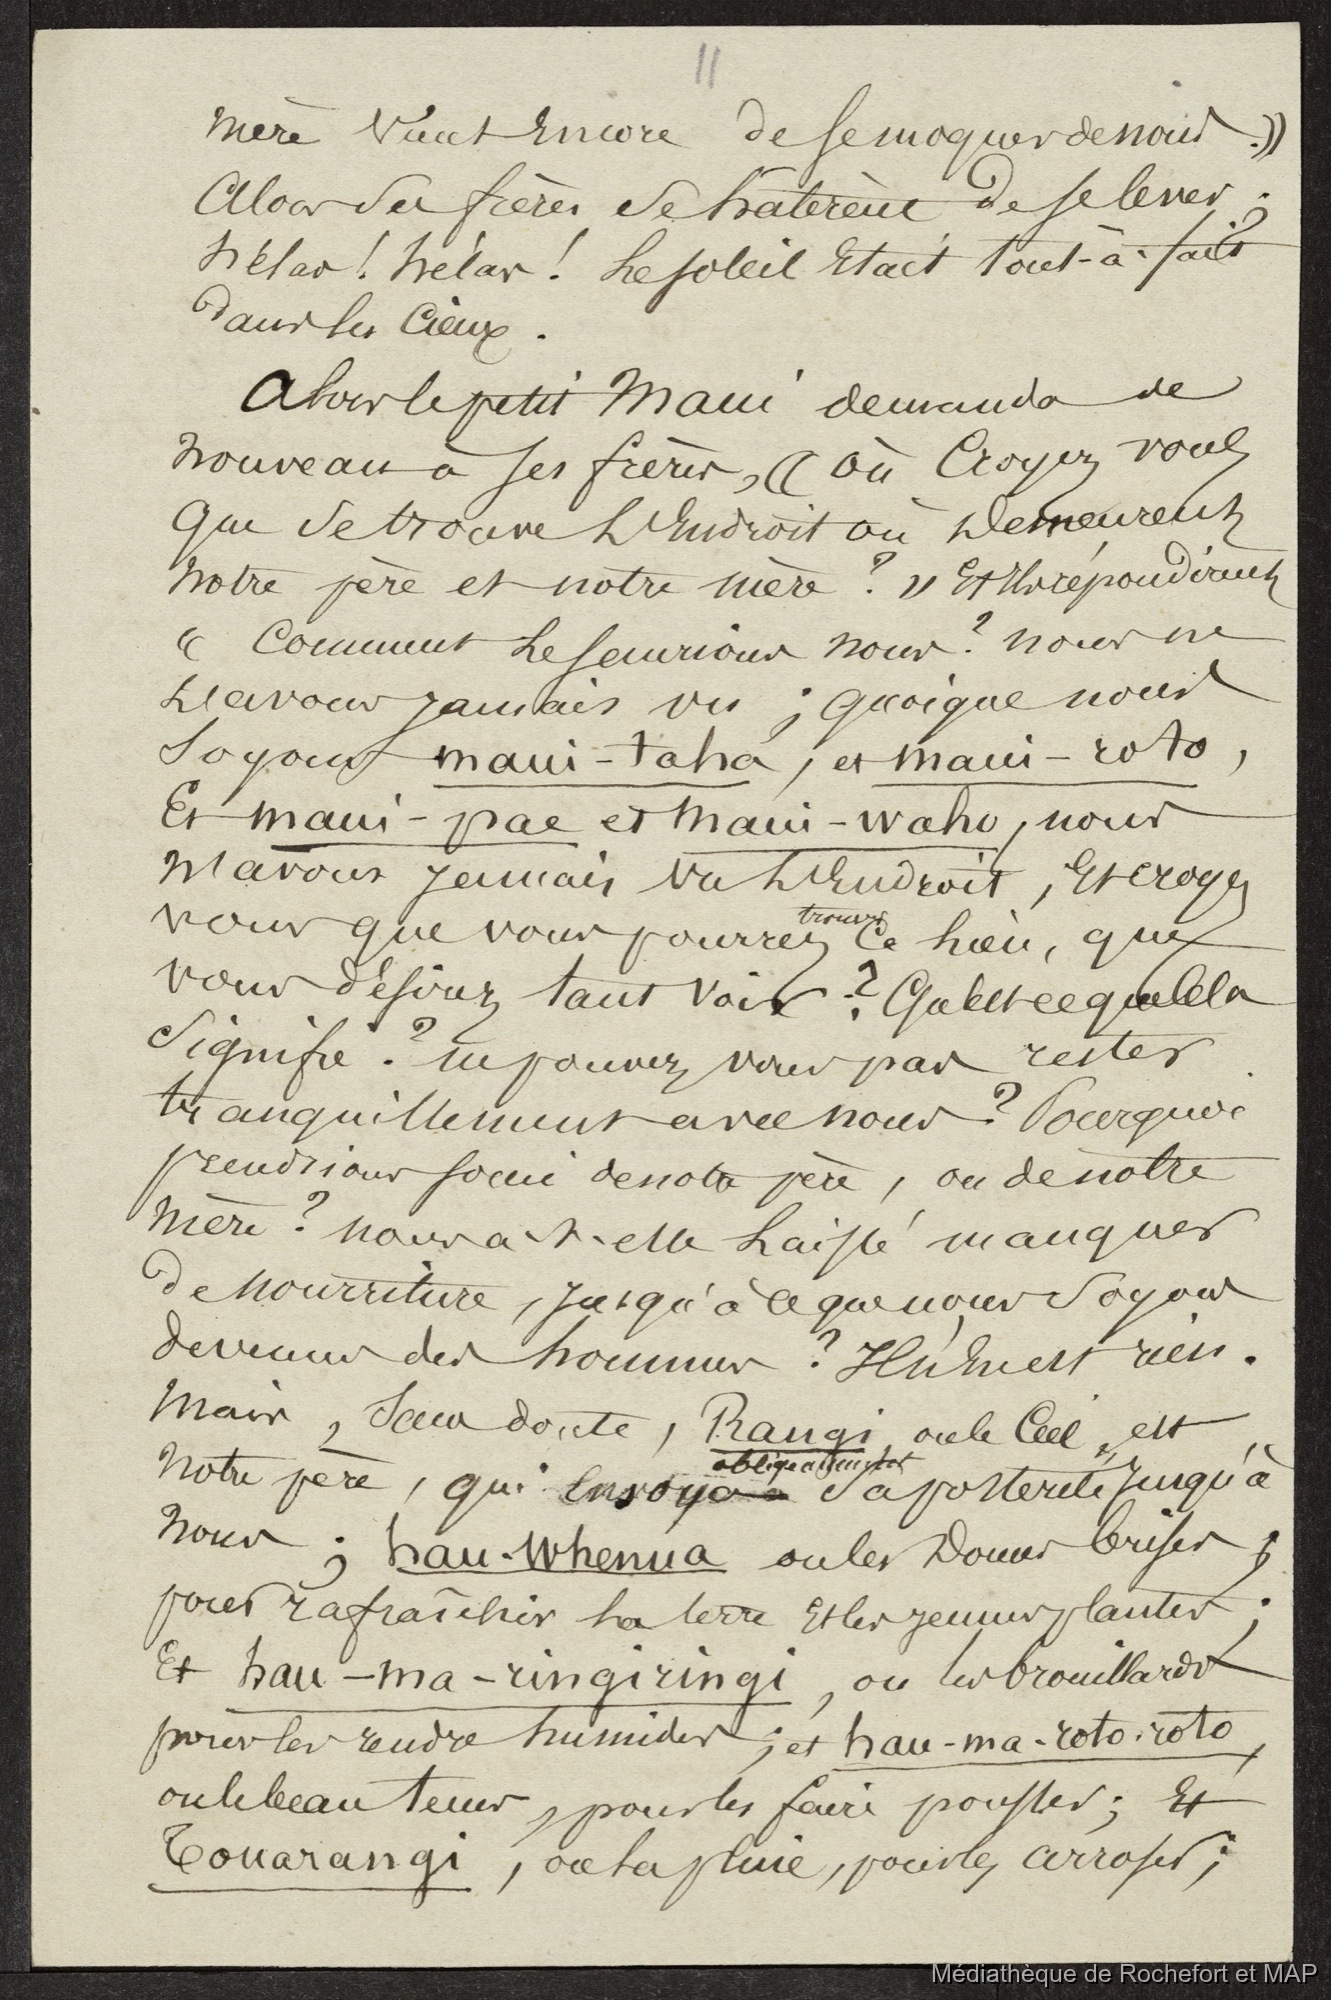 11
mère vient encore de se moquer de nous. »
Alors ses frères se hâtèrent de se lever ;
hélas ! hélas ! le soleil était tout-à-fait
dans les cieux.
Alors le petit Maui demanda de
nouveau à ses frères, « où croyez vous
que se trouve l'endroit où demeurent
notre père et notre mère ? » Et ils répondirent
« Comment le saurions nous ? nous ne
l'avons jamais vu ; quoique nous
soyons maui-taha, et maui-roto,
Et maui-pae et maui-waho, nous
n'avons jamais vu l'endroit, et croyez
vous que vous pourrez trouver ce lieu, que
vous désirez tant voir ? Qu'est ce que cela
signifie ? ne pouvez vous pas rester
tranquillement avec nous ? Pourquoi
prendrions souci de notre père, ou de notre
mère ? nous a-t-elle laissé manquer
de nourriture, jusqu'à ce que nous soyons
devenus des hommes ? Il n'en est rien.
Mais, sans doute, Rangi ou le Ciel, est
notre père, qui envoya obligeamment sa postérité jusqu'à
nous ; hau-whenua ou les doues brises ;
pour rafraîchir la terre et les jeunes plantes ;
Et hau-ma-ringiringi, ou les brouillards
pour les rendre humides ; et hau-ma-roto-roto,
ou le beau tems, pour les faire pousser ; Et
Touarangi, ou la pluie, pour les arroser ;
Médiathèque de Rochefort et MAP